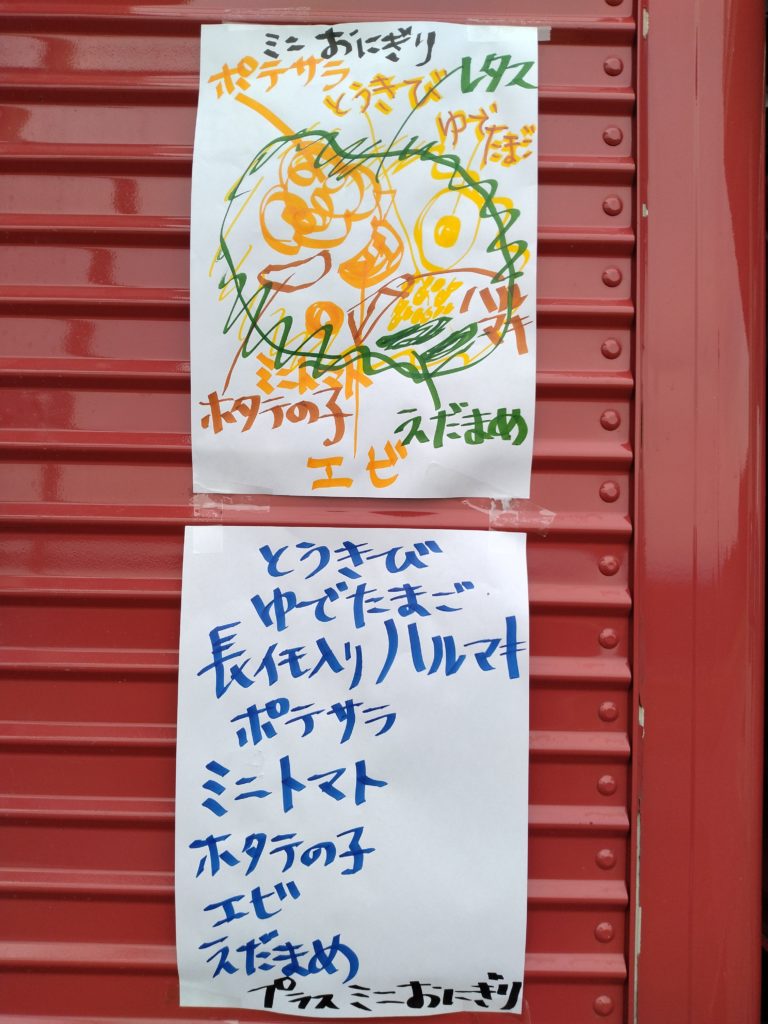 ミニおにぎり
ポテサラ
とうきび
レタス
ゆで
たまご
ハル
マキ
ミニトマト
ホタテの子
えだまめ
エビ
とうきび
ゆでたまご
長イモ入りハルマキ
ポテサラ
ミニトマト
ホタテの子
エビ
えだまめ
プラスミニおにぎり